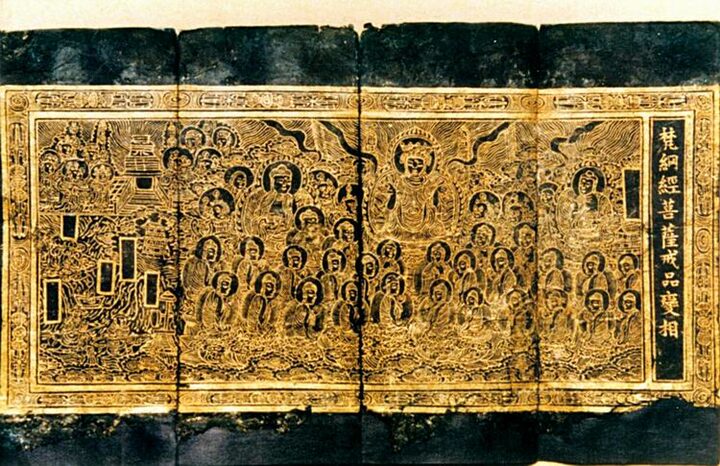 梵網經菩薩戒品變相